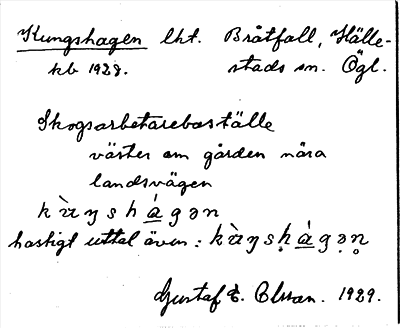 Kungshagen lht. Bråtfall, Hälle-
kb 1928. stads sn. Ögl.
Skogsarbetareboställe
väster om gården nära
landsvägen
kùŋshágən
hastigt uttal även: kùŋsh̥ágə̥n̥
Gustaf E. Olsson. 1929.